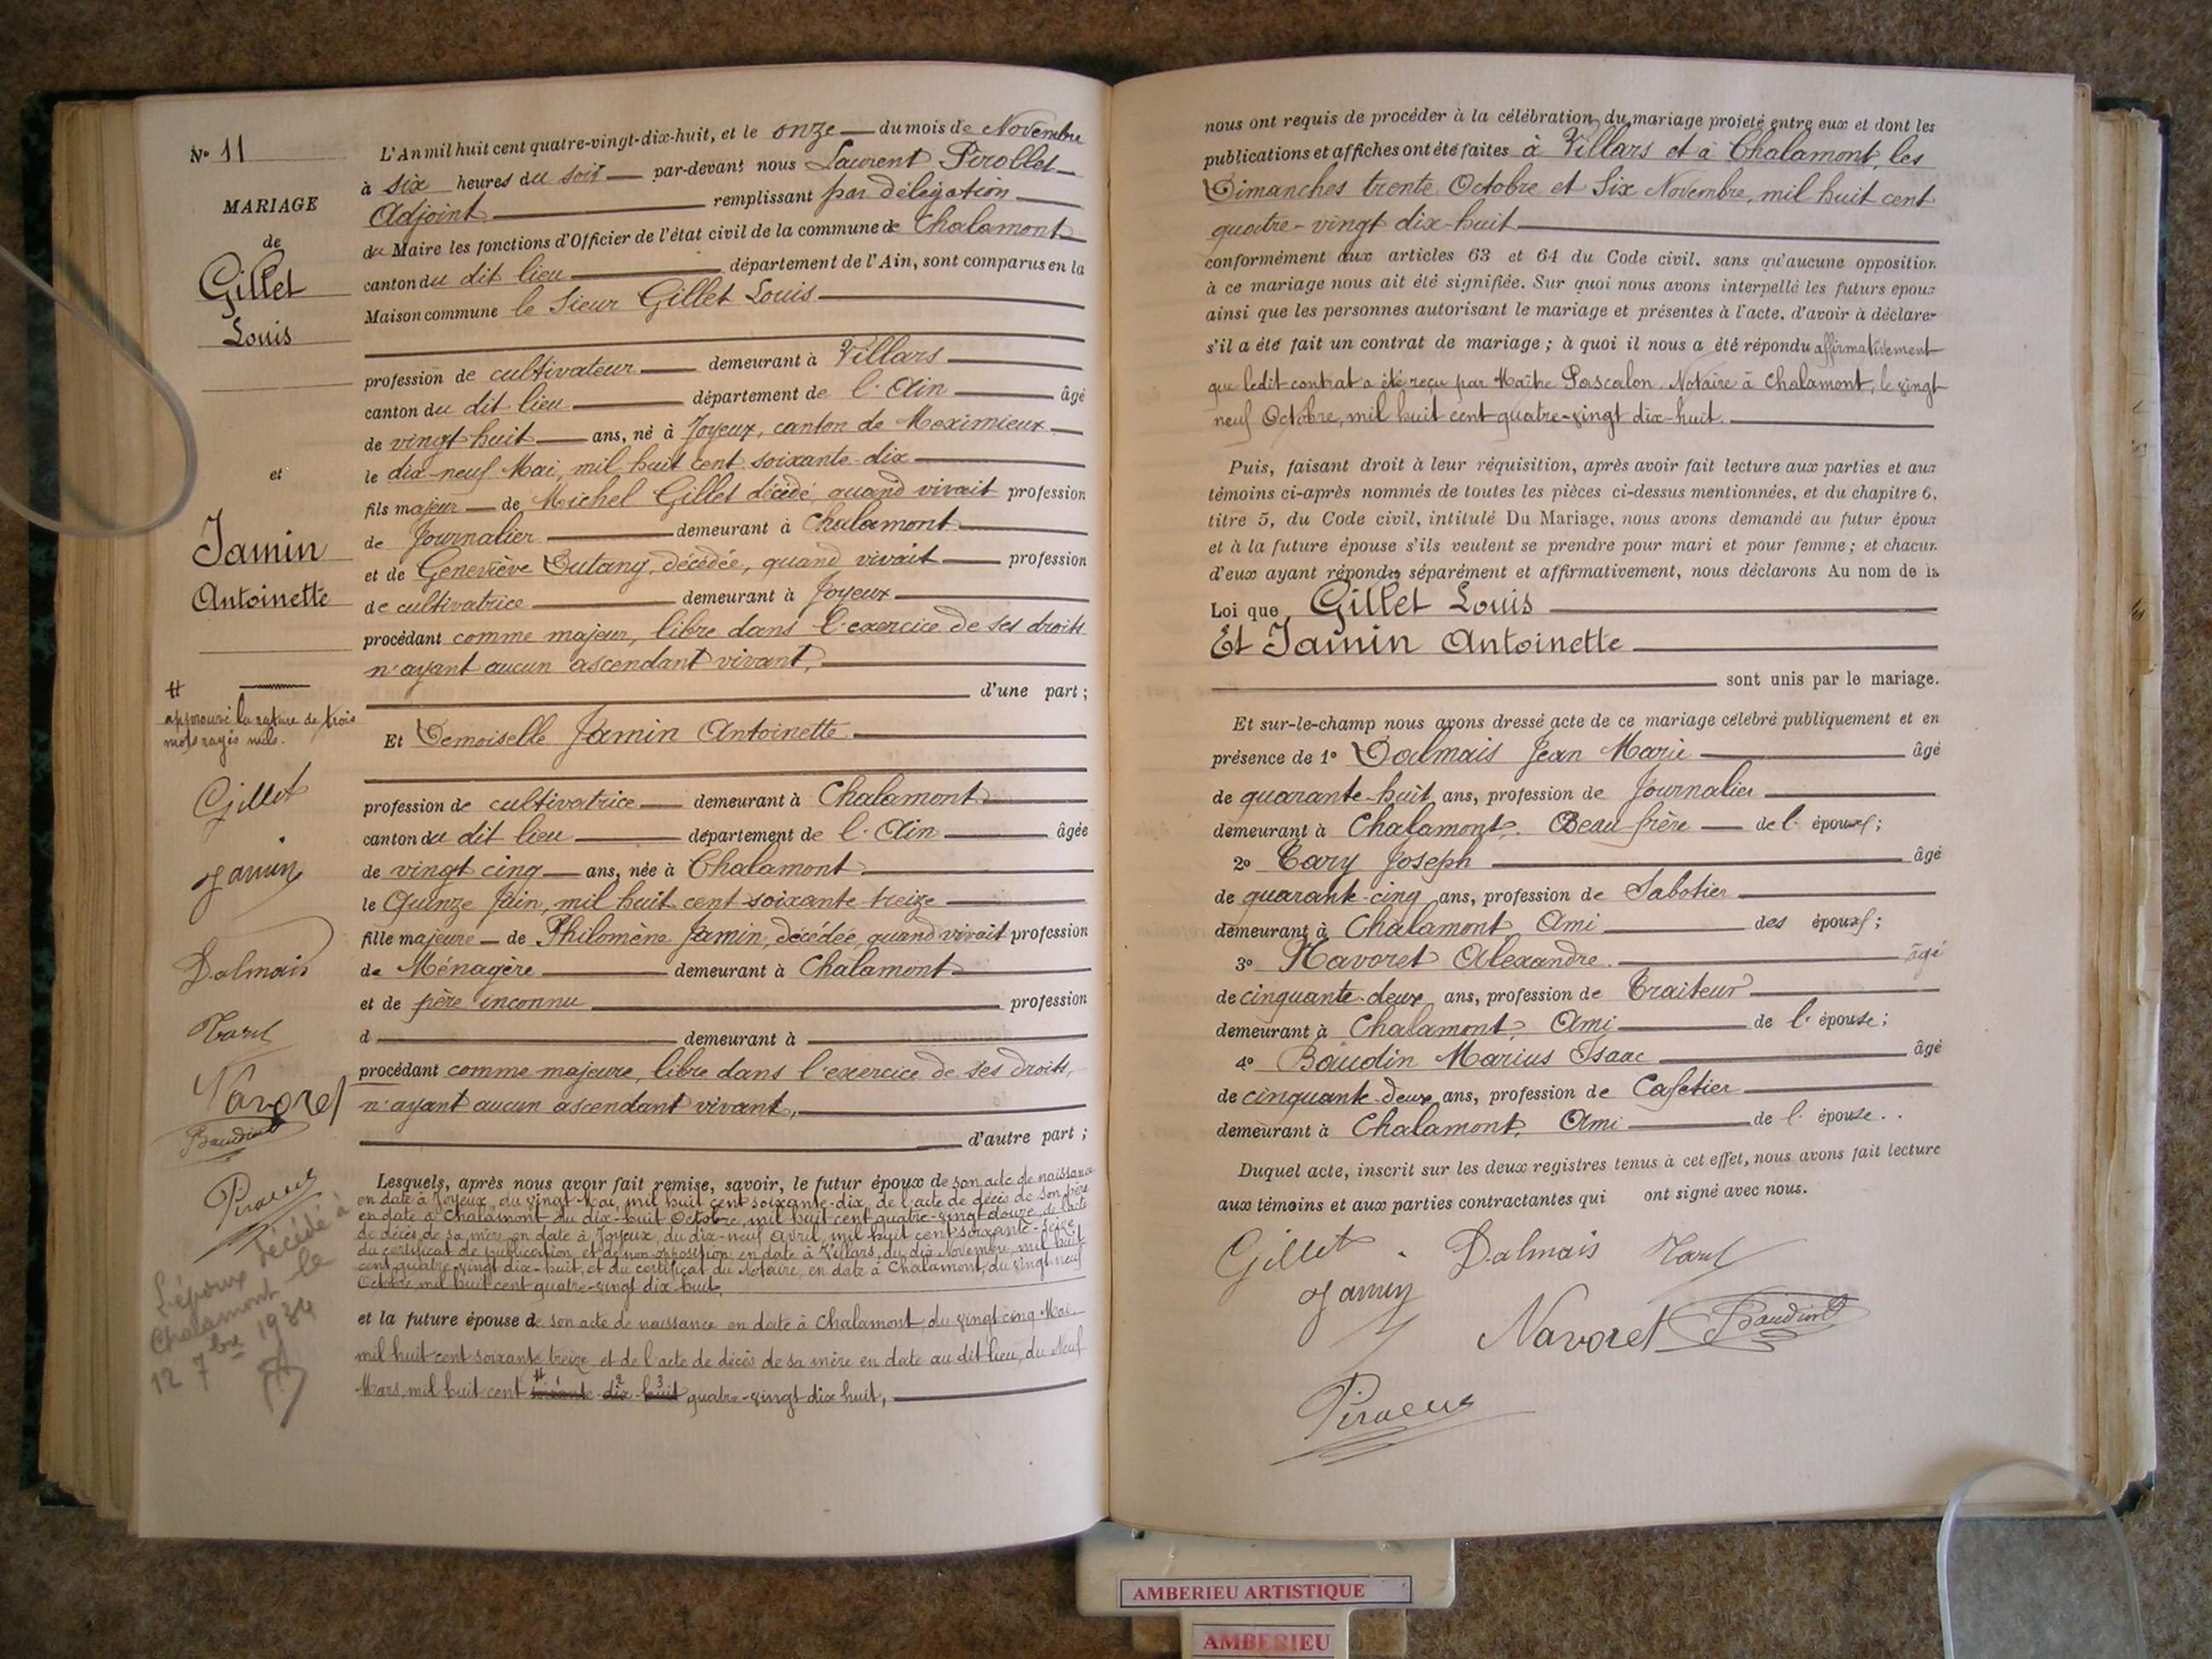 N° 11
MARIAGE
de
Gillet
Louis
et
Jamin
Antoinette
#
approuvé la rature de trois
mots rayés nuls.
Gillet
Jamin
Dalmais
Navoret
Baudin
L'époux décédé à
Chalamont le
12 7bre 1934
L'An mil huit cent quatre-vingt-dix-huit, et le onze du mois de Novembre
à six heures du soir par-devant nous Laurent Pirollet
Adjoint remplissant par délégation
du Maire les fonctions d'Officier de l'état civil de la commune de Chalamont
canton du dit lieu département de l'Ain, sont comparus en la
Maison commune le Sieur Gillet Louis
profession de cultivateur demeurant à Villars
canton du dit lieu département de l'Ain âgé
de vingt huit ans, né à Joyeux, canton de Meximieux
le dix-neuf Mai, mil huit cent soixante-dix
fils majeur de Michel Gillet décédé, quand vivait profession
de Journalier demeurant à Chalamont
et de Geneviève Dutang, décédée, quand vivait profession
de cultivatrice demeurant à Joyeux
procédant comme majeur, libre dans l'exercice de ses droits
n'ayant aucun ascendant vivant,
d'une part ;
Et Demoiselle Jamin Antoinette
profession de cultivatrice demeurant à Chalamont
canton du dit lieu département de l'Ain âgée
de vingt cinq ans, née à Chalamont
le Quinze Juin, mil huit cent soixante treize
fille majeure de Philomène Jamin, décédée, quand vivait profession
de Ménagère demeurant à Chalamont
et de père inconnu profession
d demeurant à
procédant comme majeure, libre dans l'exercice de ses droits,
n'ayant aucun ascendant vivant,
d'autre part ;
Lesquels, après nous avoir fait remise, savoir, le futur époux de son acte de naissance
en date à Joyeux, du vingt Mai, mil huit cent soixante-dix, de l'acte de décès de son père
en date à Chalamont du dix-huit Octobre, mil huit cent quatre-vingt-douze, de l'acte
de décès de sa mère en date à Joyeux, du dix-neuf Avril, mil huit cent soixante-seize,
du certificat de publication et de non opposition en date à Villars, du dix Novembre, mil huit
cent quatre-vingt dix-huit, et du certificat du Notaire, en date à Chalamont, du vingt-neuf
Octobre, mil huit cent quatre-vingt dix-huit,
et la future épouse de son acte de naissance en date à Chalamont, du vingt cinq Mai
mil huit cent soixante treize, et de l'acte de décès de sa mère en date au dit lieu, du Neuf
Mars, mil huit cent # soixante dix huit quatre-vingt dix huit,
nous ont requis de procéder à la célébration du mariage projeté entre eux et dont les
publications et affiches ont été faites à Villars et à Chalamont, les
Dimanches trente Octobre et Six Novembre, mil huit cent
quatre-vingt dix-huit
conformément aux articles 63 et 64 du Code civil. sans qu'aucune opposition
à ce mariage nous ait été signifiée. Sur quoi nous avons interpellé les futurs epoux
ainsi que les personnes autorisant le mariage et présentes à l'acte, d'avoir à déclarer
s'il a été fait un contrat de mariage ; à quoi il nous a été répondu affirmativement
que ledit contrat a été reçu par Maître Pascalon, Notaire à Chalamont, le vingt
neuf Octobre, mil huit cent quatre-vingt dix-huit.
Puis, faisant droit à leur réquisition, après avoir fait lecture aux parties et aux
témoins ci-après nommés de toutes les pièces ci-dessus mentionnées, et du chapitre 6,
titre 5, du Code civil, intitulé Du Mariage, nous avons demandé au futur époux
et à la future épouse s'ils veulent se prendre pour mari et pour femme ; et chacun
d'eux ayant répondu séparément et affirmativement, nous déclarons Au nom de la
Loi que Gillet Louis
Et Jamin Antoinette
sont unis par le mariage.
Et sur-le-champ nous avons dressé acte de ce mariage célébré publiquement et en
présence de 1° Dalmais Jean Marie âgé
de quarante-huit ans, profession de Journalier
demeurant à Chalamont, Beau frère de l'épouse ;
2° Tary Joseph âgé
de quarante-cinq ans, profession de Sabotier
demeurant à Chalamont Ami des époux ;
3° Navoret Alexandre. âgé
de cinquante-deux ans, profession de Traiteur
demeurant à Chalamont, Ami de l'épouse ;
4° Baudin Marius Isaac âgé
de cinquante-deux ans, profession de Cafetier
demeurant à Chalamont, Ami de l'épouse.
Duquel acte, inscrit sur les deux registres tenus à cet effet, nous avons fait lecture
aux témoins et aux parties contractantes qui ont signé avec nous.
Gillet Dalmais
Jamin
Navoret Baudin
AMBERIEU ARTISTIQUE
AMBERIEU